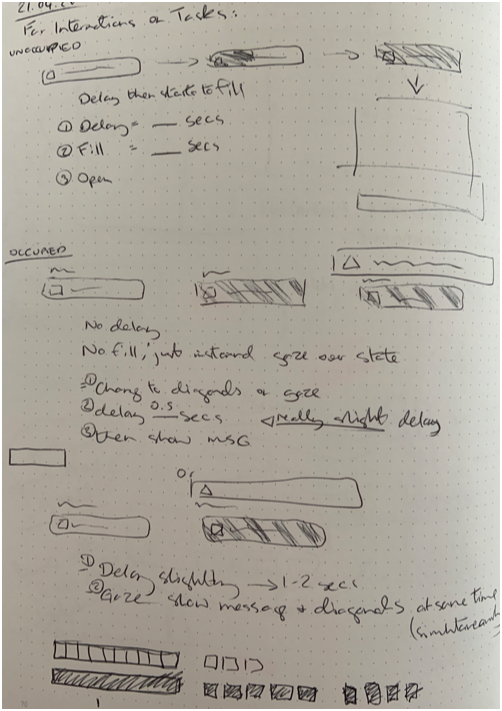 21.04.
For Interactions or Tasks:
UNOCCUPIED
Delay then starts to fill
① Delay = __ secs
② Fill = __ secs
③ Open
OCCUPIED
No delay
No fill, just instead gaze over state
① Change to diagonals on gaze
② delay 0.5 secs ◁ really slight delay
③ then show MSG
Or
① Delay slightly → 1-2 secs
② Gaze show message + diagonals at same time